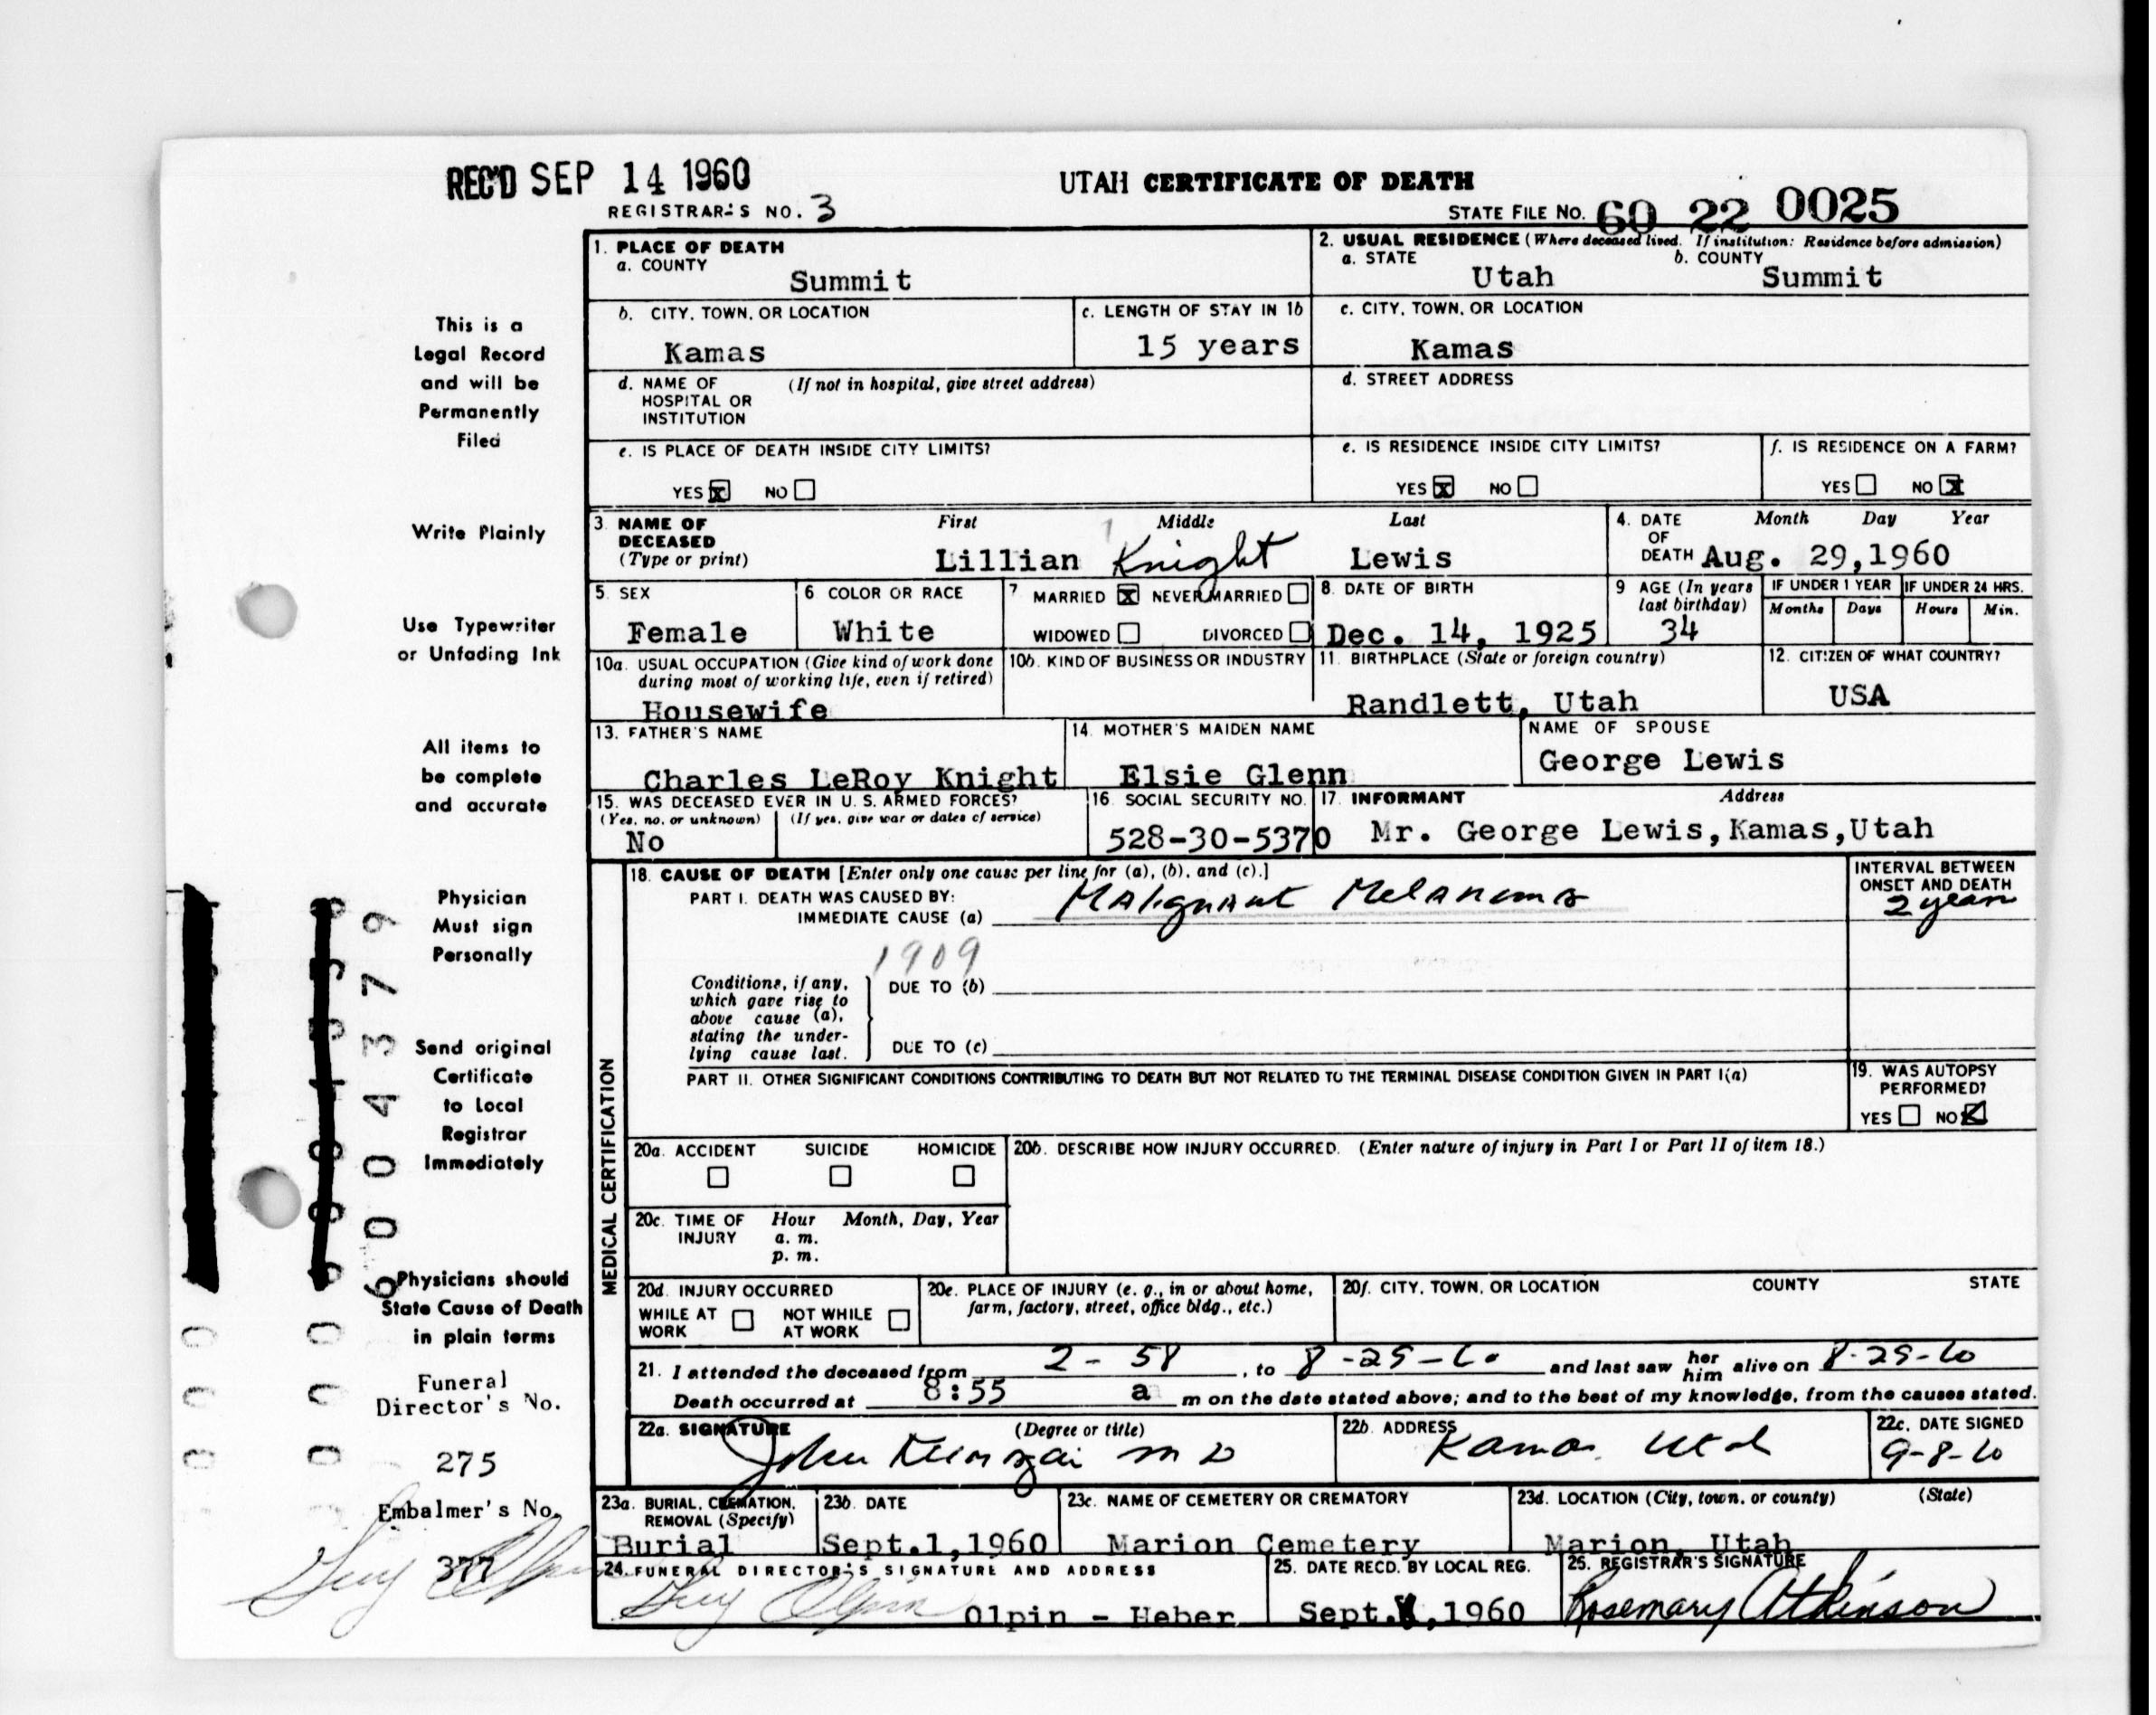 REC'D SEP 14 1960
UTAH CERTIFICATE OF DEATH
REGISTRAR'S NO. 3
STATE FILE NO. 60 22 0025
This is a
Legal Record
and will be
Permanently
Filed
Write Plainly
Use Typewriter
or Unfading Ink
All items to
be complete
and accurate
Physician
Must sign
Personally
Send original
Certificate
to Local
Registrar
Immediately
Physicians should
State Cause of Death
in plain terms
Funeral
Director's No.
275
Embalmer's No.
377
600 4379
1. PLACE OF DEATH
a. COUNTY
Summit
2. USUAL RESIDENCE (Where deceased lived. If institution: Residence before admission)
a. STATE b. COUNTY
Utah Summit
b. CITY, TOWN, OR LOCATION
Kamas
c. LENGTH OF STAY IN 1b
15 years
c. CITY, TOWN, OR LOCATION
Kamas
d. NAME OF (If not in hospital, give street address)
HOSPITAL OR
INSTITUTION
d. STREET ADDRESS
e. IS PLACE OF DEATH INSIDE CITY LIMITS?
YES x NO
e. IS RESIDENCE INSIDE CITY LIMITS?
YES x NO
f. IS RESIDENCE ON A FARM?
YES NO x
3. NAME OF DECEASED (Type or print)
First Middle Last
Lillian Knight Lewis
4. DATE OF DEATH
Month Day Year
Aug. 29,1960
5. SEX
Female
6 COLOR OR RACE
White
7 MARRIED x NEVER MARRIED
WIDOWED DIVORCED
8. DATE OF BIRTH
Dec. 14, 1925
9 AGE (In years last birthday)
34
IF UNDER 1 YEAR IF UNDER 24 HRS.
Months Days Hours Min.
10a. USUAL OCCUPATION (Give kind of work done
during most of working life, even if retired)
Housewife
10b. KIND OF BUSINESS OR INDUSTRY
11. BIRTHPLACE (State or foreign country)
Randlett, Utah
12. CITIZEN OF WHAT COUNTRY?
USA
13. FATHER'S NAME
Charles LeRoy Knight
14. MOTHER'S MAIDEN NAME
Elsie Glenn
NAME OF SPOUSE
George Lewis
15. WAS DECEASED EVER IN U. S. ARMED FORCES?
(Yes, no, or unknown) (If yes, give war or dates of service)
No
16. SOCIAL SECURITY NO.
528-30-5370
17. INFORMANT Address
Mr. George Lewis,Kamas,Utah
MEDICAL CERTIFICATION
18. CAUSE OF DEATH [Enter only one cause per line for (a), (b), and (c).]
PART I. DEATH WAS CAUSED BY:
IMMEDIATE CAUSE (a) Malignant Melanoma
INTERVAL BETWEEN
ONSET AND DEATH
2 years
1909
Conditions, if any,
which gave rise to
above cause (a),
stating the under-
lying cause last.
DUE TO (b)
DUE TO (c)
PART II. OTHER SIGNIFICANT CONDITIONS CONTRIBUTING TO DEATH BUT NOT RELATED TO THE TERMINAL DISEASE CONDITION GIVEN IN PART I(a)
19. WAS AUTOPSY
PERFORMED?
YES NO
20a. ACCIDENT SUICIDE HOMICIDE
20b. DESCRIBE HOW INJURY OCCURRED. (Enter nature of injury in Part I or Part II of item 18.)
20c. TIME OF INJURY
Hour Month, Day, Year
a. m.
p. m.
20d. INJURY OCCURRED
WHILE AT WORK NOT WHILE AT WORK
20e. PLACE OF INJURY (e. g., in or about home,
farm, factory, street, office bldg., etc.)
20f. CITY, TOWN, OR LOCATION COUNTY STATE
21. I attended the deceased from 2-58, to 8-29-60 and last saw her him alive on 8-29-60
Death occurred at 8:55 a m on the date stated above; and to the best of my knowledge, from the causes stated.
22a. SIGNATURE (Degree or title)
John M D
22b. ADDRESS
Kamas Utah
22c. DATE SIGNED
9-8-60
23a. BURIAL, CREMATION,
REMOVAL (Specify)
Burial
23b. DATE
Sept.1,1960
23c. NAME OF CEMETERY OR CREMATORY
Marion Cemetery
23d. LOCATION (City, town, or county) (State)
Marion, Utah
24. FUNERAL DIRECTOR'S SIGNATURE AND ADDRESS
Olpin - Heber
25. DATE RECD. BY LOCAL REG.
Sept. ,1960
26. REGISTRAR'S SIGNATURE
Rosemary Atkinson